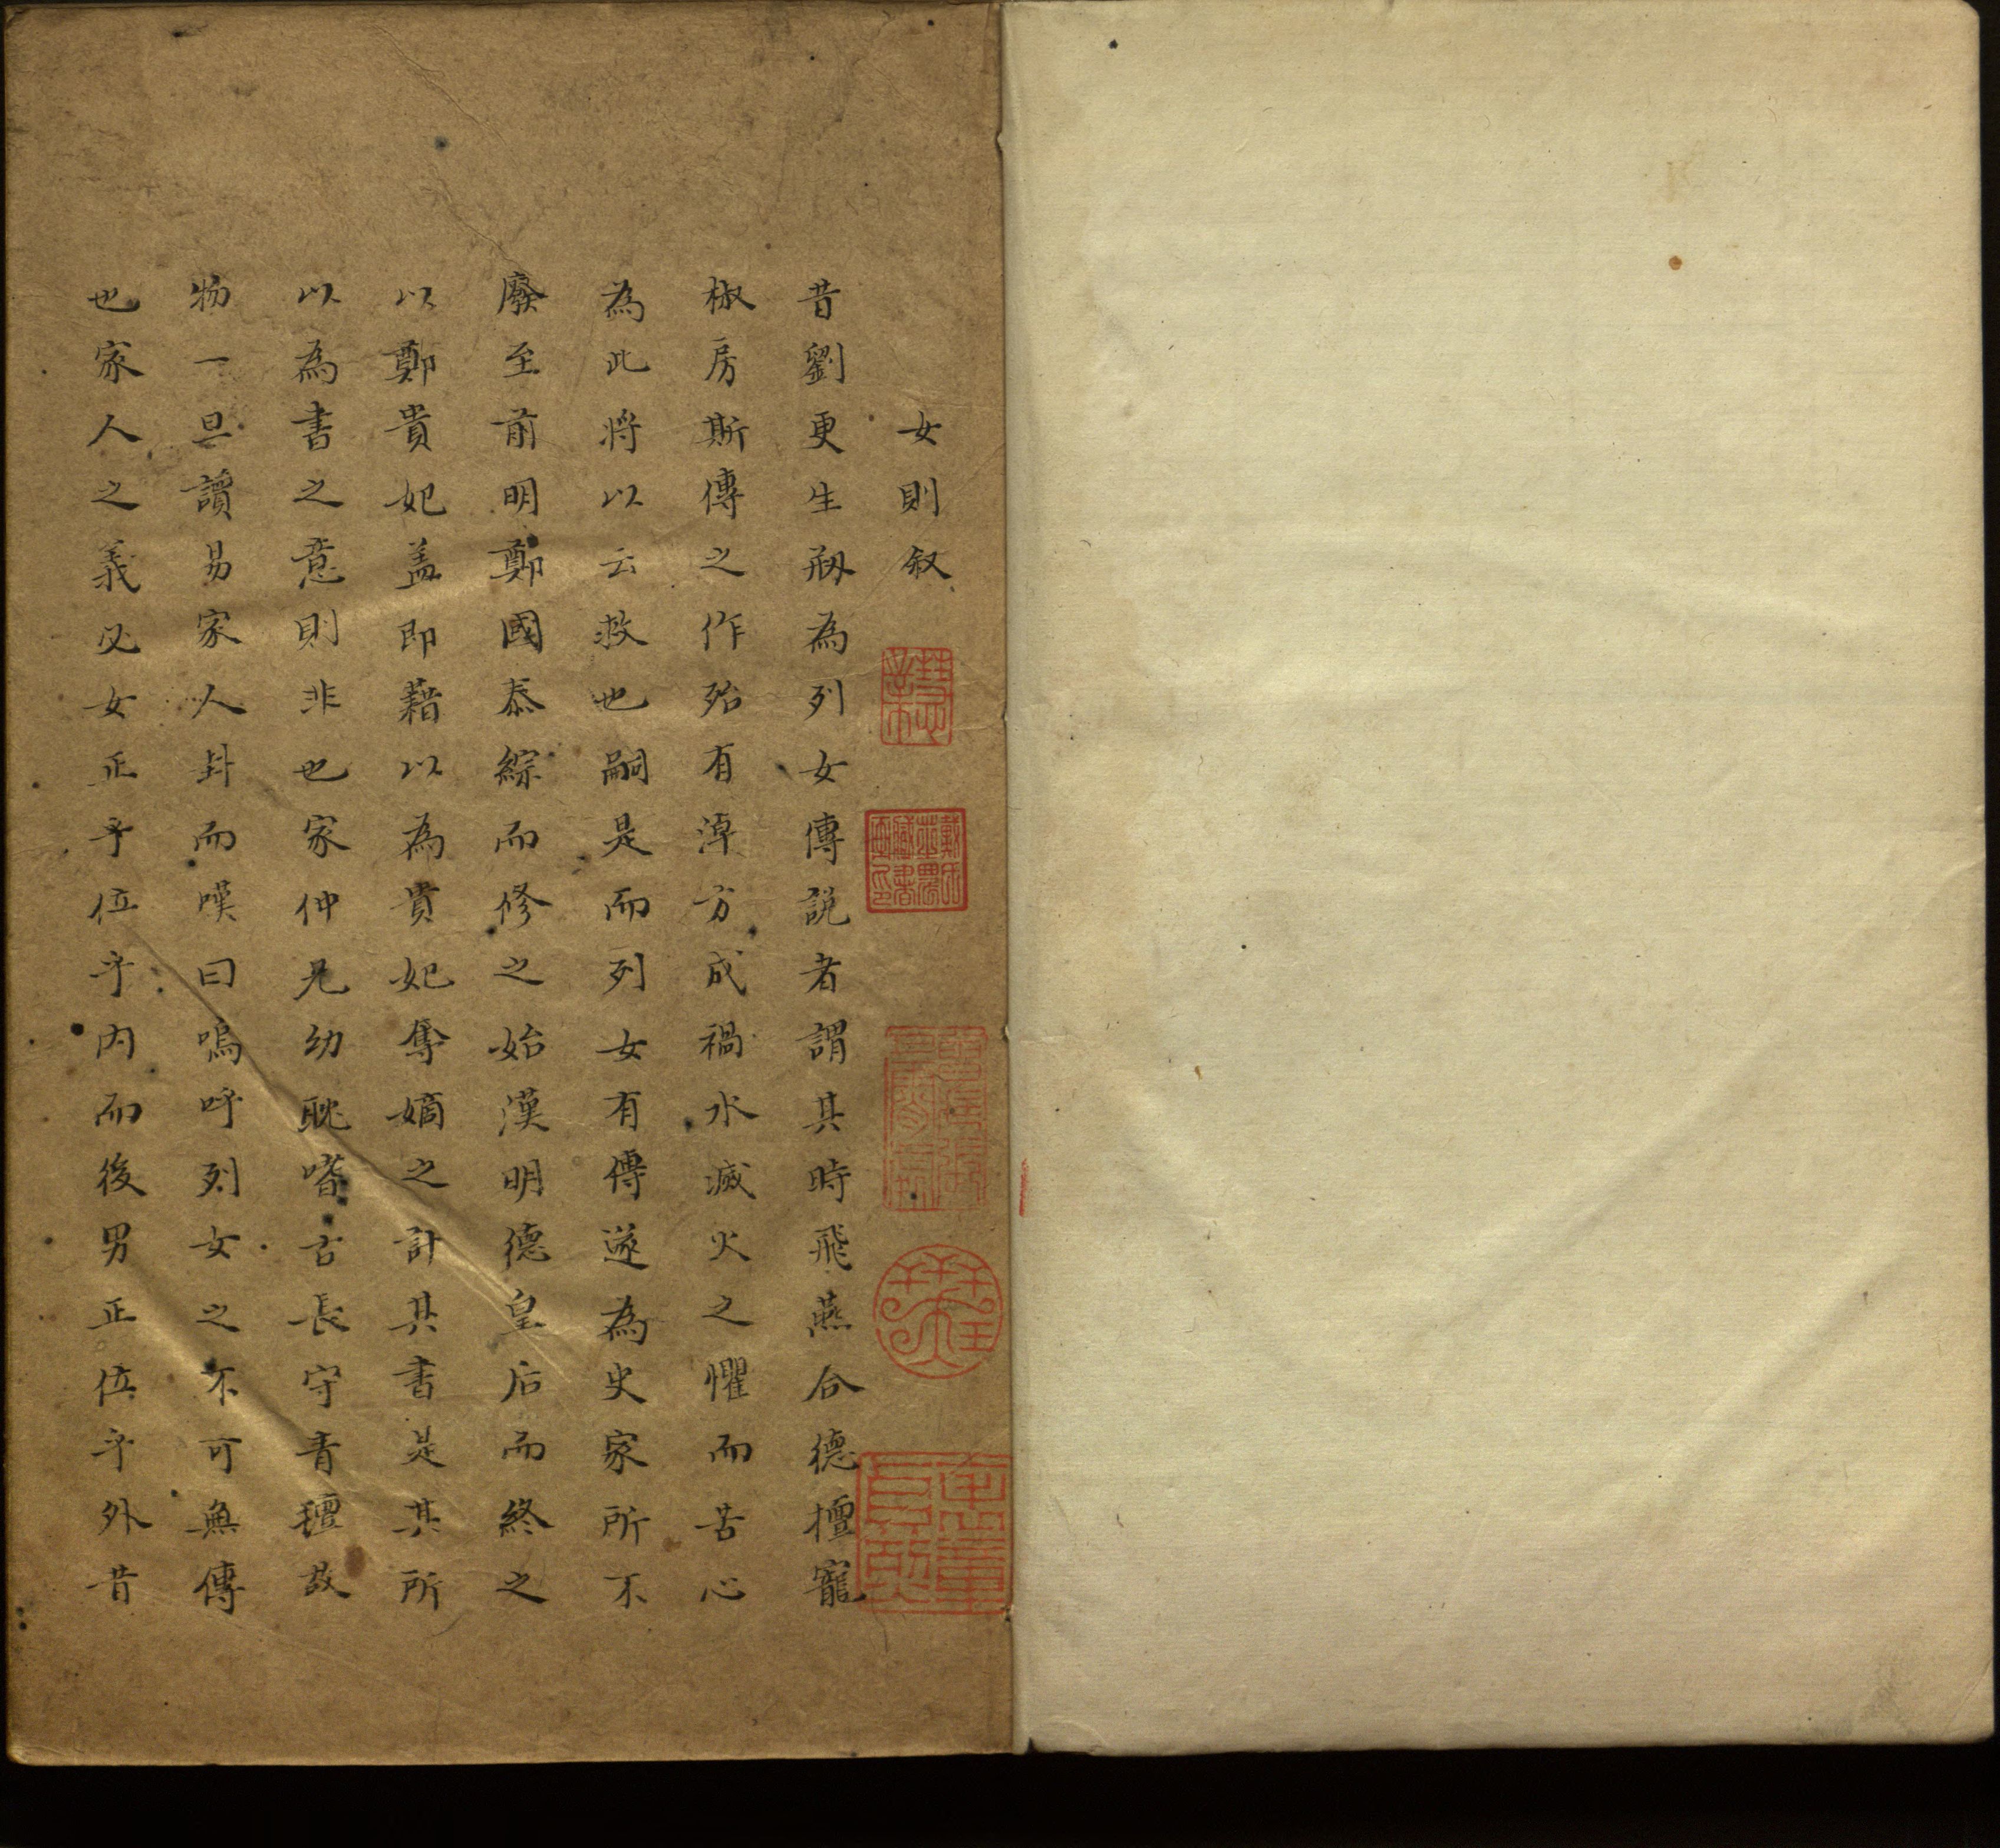 女則叙
昔劉更生刱為列女傳説者謂其時飛燕合德擅寵
椒房斯傳之作殆有淖方成禍水滅火之懼而苦心
為此將以云救也嗣是而列女有傳遂為史家所不
廢至前明鄭國泰綜而修之始漢明德皇后而終之
以鄭貴妃盖即藉以為貴妃奪嫡之計其書是其所
以為書之意則非也家仲兄幼耽嗜古長守青氊故
物一旦讀易家人卦而嘆曰嗚呼列女之不可無傳
也家人之義必女正乎位乎内而後男正位乎外昔
戴氏芝農藏書畫印